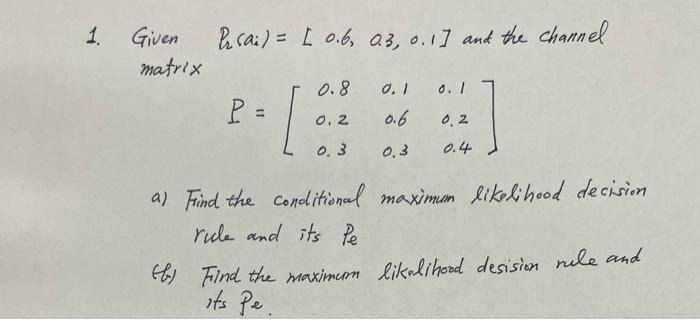 1. Given Pr(ai) = [ 0.6, 0.3, 0.1 ] and the channel
matrix
P = [ 0.8 0.1 0.1
0.2 0.6 0.2
0.3 0.3 0.4 ]
a) Find the conditional maximum likelihood decision
rule and its Pe
(b) Find the maximum likelihood desision rule and
its Pe.